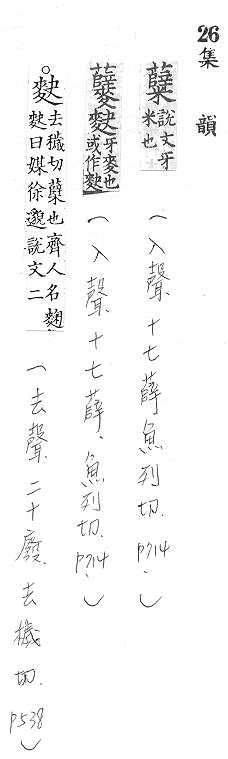 26 集韻
糱 說文牙
米也
（入聲十七薛魚列切. p714.）
牙麥也
或作
（入聲十七薛、魚列切. p714.）
去穢切糱也齊人名麴
曰媒徐邈說文二
（去聲二十廢去穢切. p538）